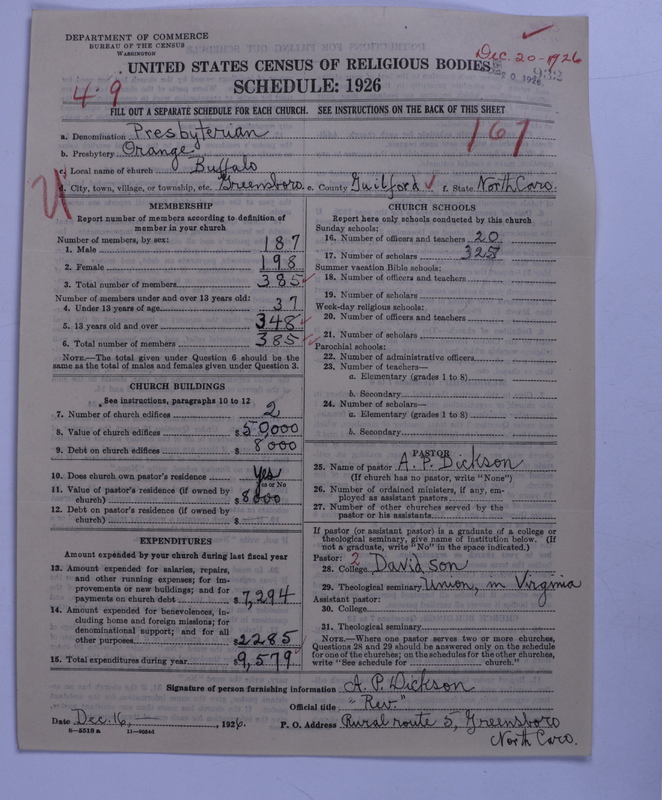 DEPARTMENT OF COMMERCE
BUREAU OF THE CENSUS
WASHINGTON
Dec. 20-1926
UNITED STATES CENSUS OF RELIGIOUS BODIES
SCHEDULE: 1926
4-9
FILL OUT A SEPARATE SCHEDULE FOR EACH CHURCH. SEE INSTRUCTIONS ON THE BACK OF THIS SHEET
161
a. Denomination Presbyterian
b. Presbytery Orange
c. Local name of church Buffalo
d. City, town, village, or township, etc. Greensboro e. County Guilford f. State North Caro.
MEMBERSHIP
Report number of members according to definition of
member in your church
Number of members, by sex:
1. Male 187
2. Female 198
3. Total number of members 385
Number of members under and over 13 years old:
4. Under 13 years of age 37
5. 13 years old and over 348
6. Total number of members 385
NOTE.—The total given under Question 6 should be
same as the total of males and females given under Question 3.
CHURCH BUILDINGS
See instructions, paragraphs 10 to 12
7. Number of church edifices 2
8. Value of church edifices $50,000
9. Debt on church edifices $8000
10. Does church own pastor's residence Yes
Yes or No
11. Value of pastor's residence (if owned by
church) $8000
12. Debt on pastor's residence (if owned by
church) $
EXPENDITURES
Amount expended by your church during last fiscal year
13. Amount expended for salaries, repairs,
and other running expenses; for im-
provements or new buildings; and for
payments on church debt $7,294
14. Amount expended for benevolences, in-
cluding home and foreign missions; for
denominational support; and for all
other purposes $2285
15. Total expenditures during year $9,579
CHURCH SCHOOLS
Report here only schools conducted by this church
Sunday schools:
16. Number of officers and teachers 20
17. Number of scholars 325
Summer vacation Bible schools:
18. Number of officers and teachers
19. Number of scholars
Week-day religious schools:
20. Number of officers and teachers
21. Number of scholars
Parochial schools:
22. Number of administrative officers
23. Number of teachers—
a. Elementary (grades 1 to 8)
b. Secondary
24. Number of scholars—
a. Elementary (grades 1 to 8)
b. Secondary
PASTOR
25. Name of pastor A. P. Dickson
(If church has no pastor, write "None")
26. Number of ordained ministers, if any, em-
ployed as assistant pastors
27. Number of other churches served by the
pastor or his assistants
If pastor (or assistant pastor) is a graduate of a college or
theological seminary, give name of institution below. (If
not a graduate, write "No" in the space indicated.)
Pastor: 2
28. College Davidson
29. Theological seminary Union, in Virginia
Assistant pastor:
30. College
31. Theological seminary
NOTE.—Where one pastor serves two or more churches,
Questions 28 and 29 should be answered only on the schedule
for one of the churches; on the schedules for the other churches,
write "See schedule for church."
Signature of person furnishing information A. P. Dickson
Official title "Rev."
Date Dec. 16, 1926 P. O. Address Rural route 5, Greensboro
North Caro.